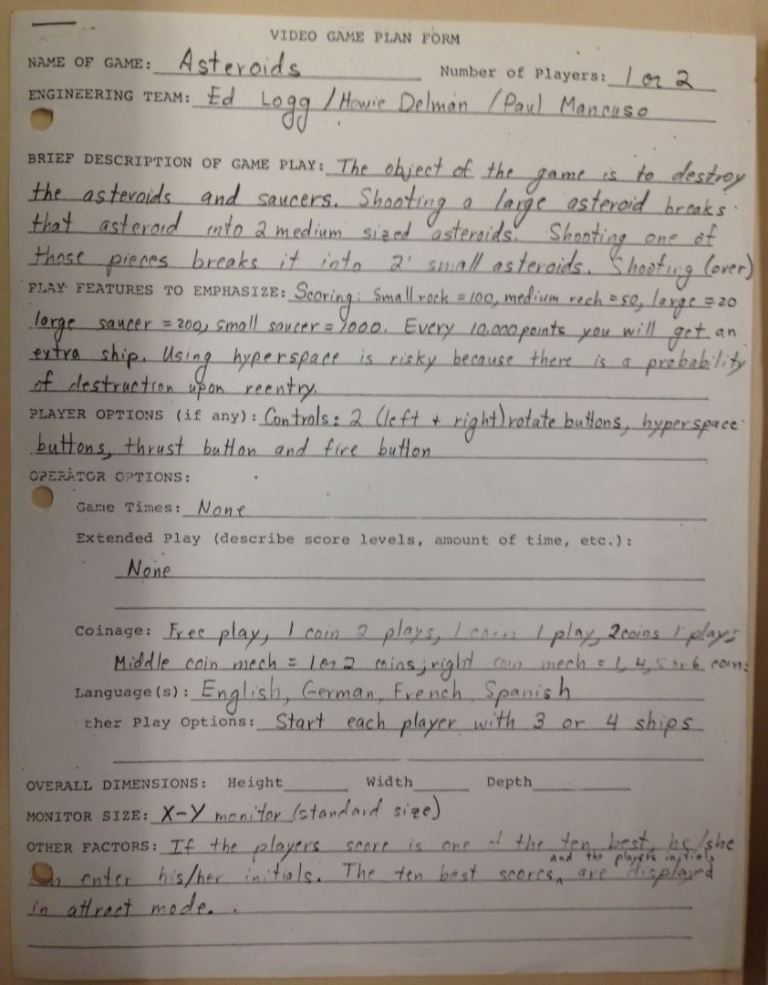 VIDEO GAME PLAN FORM
NAME OF GAME: Asteroids Number of Players: 1 or 2
ENGINEERING TEAM: Ed Logg / Howie Delman / Paul Mancuso
BRIEF DESCRIPTION OF GAME PLAY: The object of the game is to destroy
the asteroids and saucers. Shooting a large asteroid breaks
that asteroid into 2 medium sized asteroids. Shooting one of
those pieces breaks it into 2 small asteroids. Shooting (over)
PLAY FEATURES TO EMPHASIZE: Scoring: Small rock = 100, medium rock = 50, large = 20
large saucer = 200, small saucer = 1000. Every 10,000 points you will get an
extra ship. Using hyperspace is risky because there is a probability
of destruction upon reentry.
PLAYER OPTIONS (if any): Controls: 2 (left + right) rotate buttons, hyperspace
buttons, thrust button and fire button
OPERATOR OPTIONS:
Game Times: None
Extended Play (describe score levels, amount of time, etc.):
None
Coinage: Free play, 1 coin 2 plays, 1 coin 1 play, 2 coins 1 play;
Middle coin mech = 1 or 2 coins; right coin mech = 1, 4, 5 or 6 coins
Language(s): English, German, French, Spanish
ther Play Options: Start each player with 3 or 4 ships
OVERALL DIMENSIONS: Height Width Depth
MONITOR SIZE: X-Y monitor (standard size)
OTHER FACTORS: If the players score is one of the ten best, he/she
and the players initials
enter his/her initials. The ten best scores, are displayed
in attract mode.